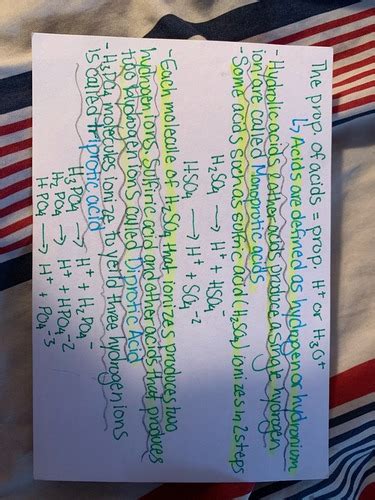 The prop. of acids = prop. H+ or H3O+
↳ Acids are defined as hydrogen or hydronium
- Hydrolic acids & other acids produce a single hydrogen
ion are called Monoprotic acids
- Some acids such as sulfuric acid (H2SO4) ionizes in 2 steps
H2SO4 → H+ + HSO4-
HSO4 → H+ + SO4-2
- Each molecule of H2SO4 that ionizes produces two
hydrogen ions. Sulfuric acid and other acids that produces
two hydrogen ions called Diprotic Acid
- H3PO4 molecules ionize to yield three hydrogen ions
is called triprotic acid
H3PO4 → H+ + H2PO4-
H2PO4 → H+ + HPO4-2
HPO4 → H+ + PO4-3